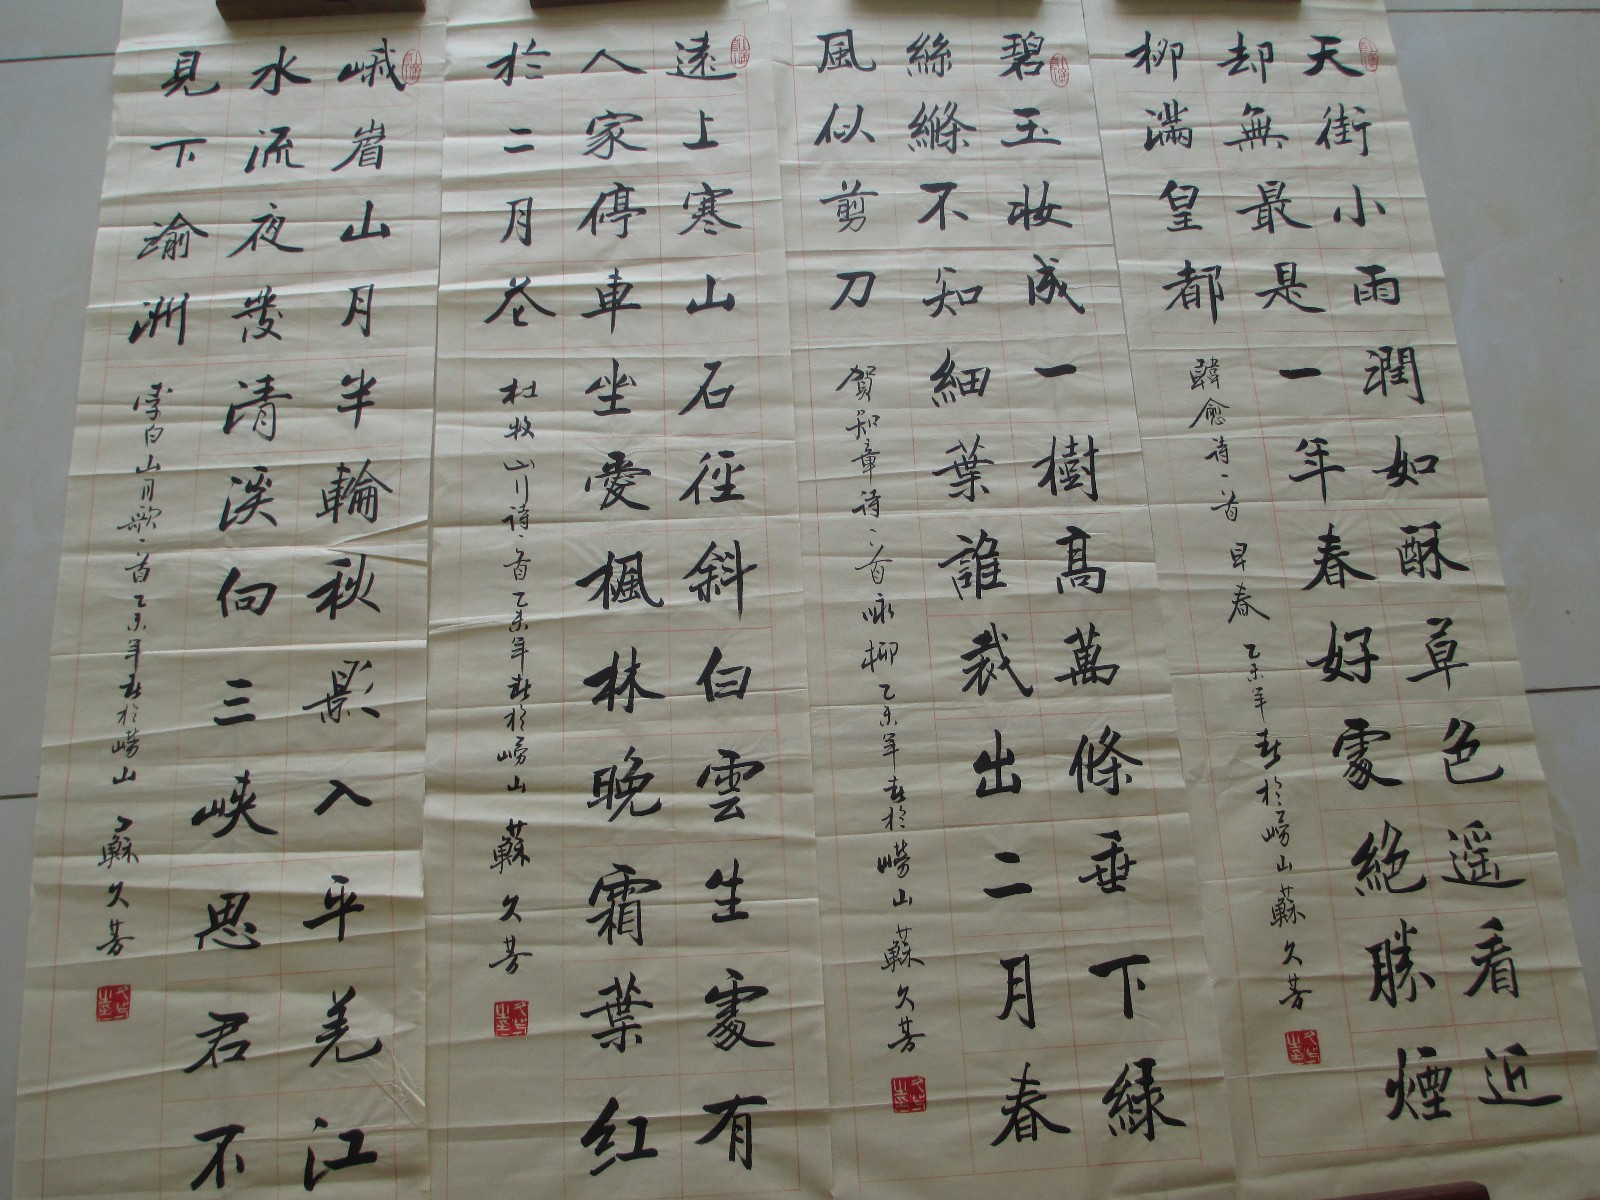 天街小雨潤如酥草色遥看近
却無最是一年春好處絕勝煙
柳滿皇都
韓愈诗一首 早春 乙未年春於崂山蘇久芳
碧玉妆成一樹髙萬條垂下緑
絲縧不知細葉誰裁出二月春
風似剪刀
賀知章诗一首 咏柳 乙未年春於崂山蘇久芳
遠上寒山石徑斜白雲生處有
人家停車坐愛楓林晚霜葉红
於二月花
杜牧山行诗一首 乙未年春於崂山 蘇久芳
峨眉山月半輪秋影入平羌江
水流夜發清溪向三峡思君不
見下渝洲
李白山月歌一首 乙未年春於崂山 蘇久芳